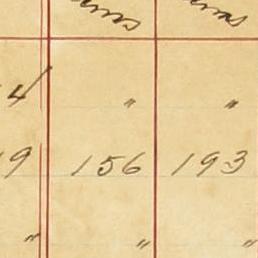 4 " "
9 156 193
" " "